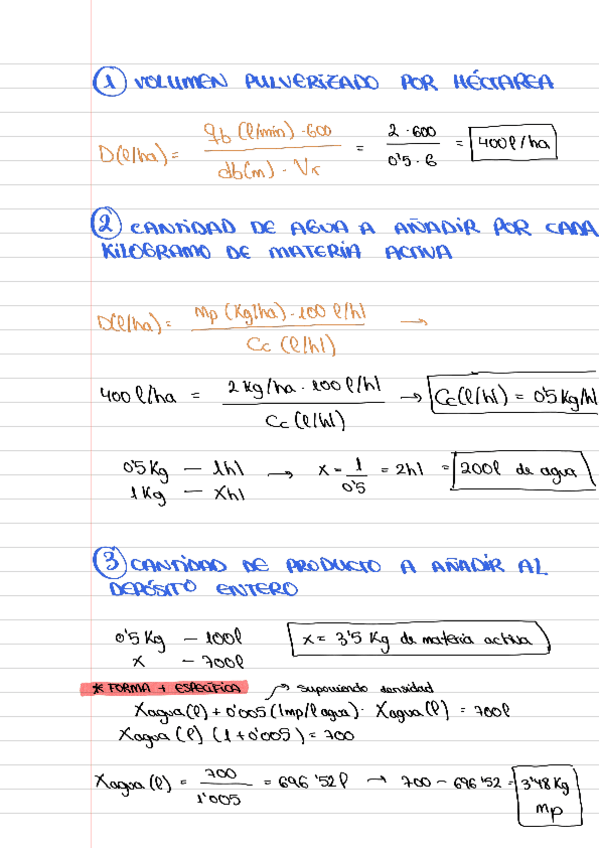 ① VOLUMEN PULVERIZADO POR HÉCTAREA
D(l/ha) = qb (l/min) · 600 / db(m) · Vr = 2 · 600 / 0'5 · 6 = 400 l/ha
② CANTIDAD DE AGUA A AÑADIR POR CADA
KILOGRAMO DE MATERIA ACTIVA
D(l/ha) = Mp (Kg/ha) · 100 l/hl / Cc (l/hl) →
400 l/ha = 2 kg/ha · 100 l/hl / Cc (l/hl) → Cc (l/hl) = 0'5 Kg/hl
0'5 Kg — 1hl → x = 1 / 0'5 = 2hl = 200l de agua
1 Kg — Xhl
③ CANTIDAD DE PRODUCTO A AÑADIR AL
DEPÓSITO ENTERO
0'5 Kg — 100l x = 3'5 Kg de materia activa
x — 700l
* FORMA + ESPECÍFICA → suponiendo densidad
Xagua (l) + 0'005 (lmp/l agua) · Xagua (l) = 700l
Xagua (l) (1 + 0'005) = 700
Xagua (l) = 700 / 1'005 = 696'52 l → 700 - 696'52 = 3'48 Kg
Mp